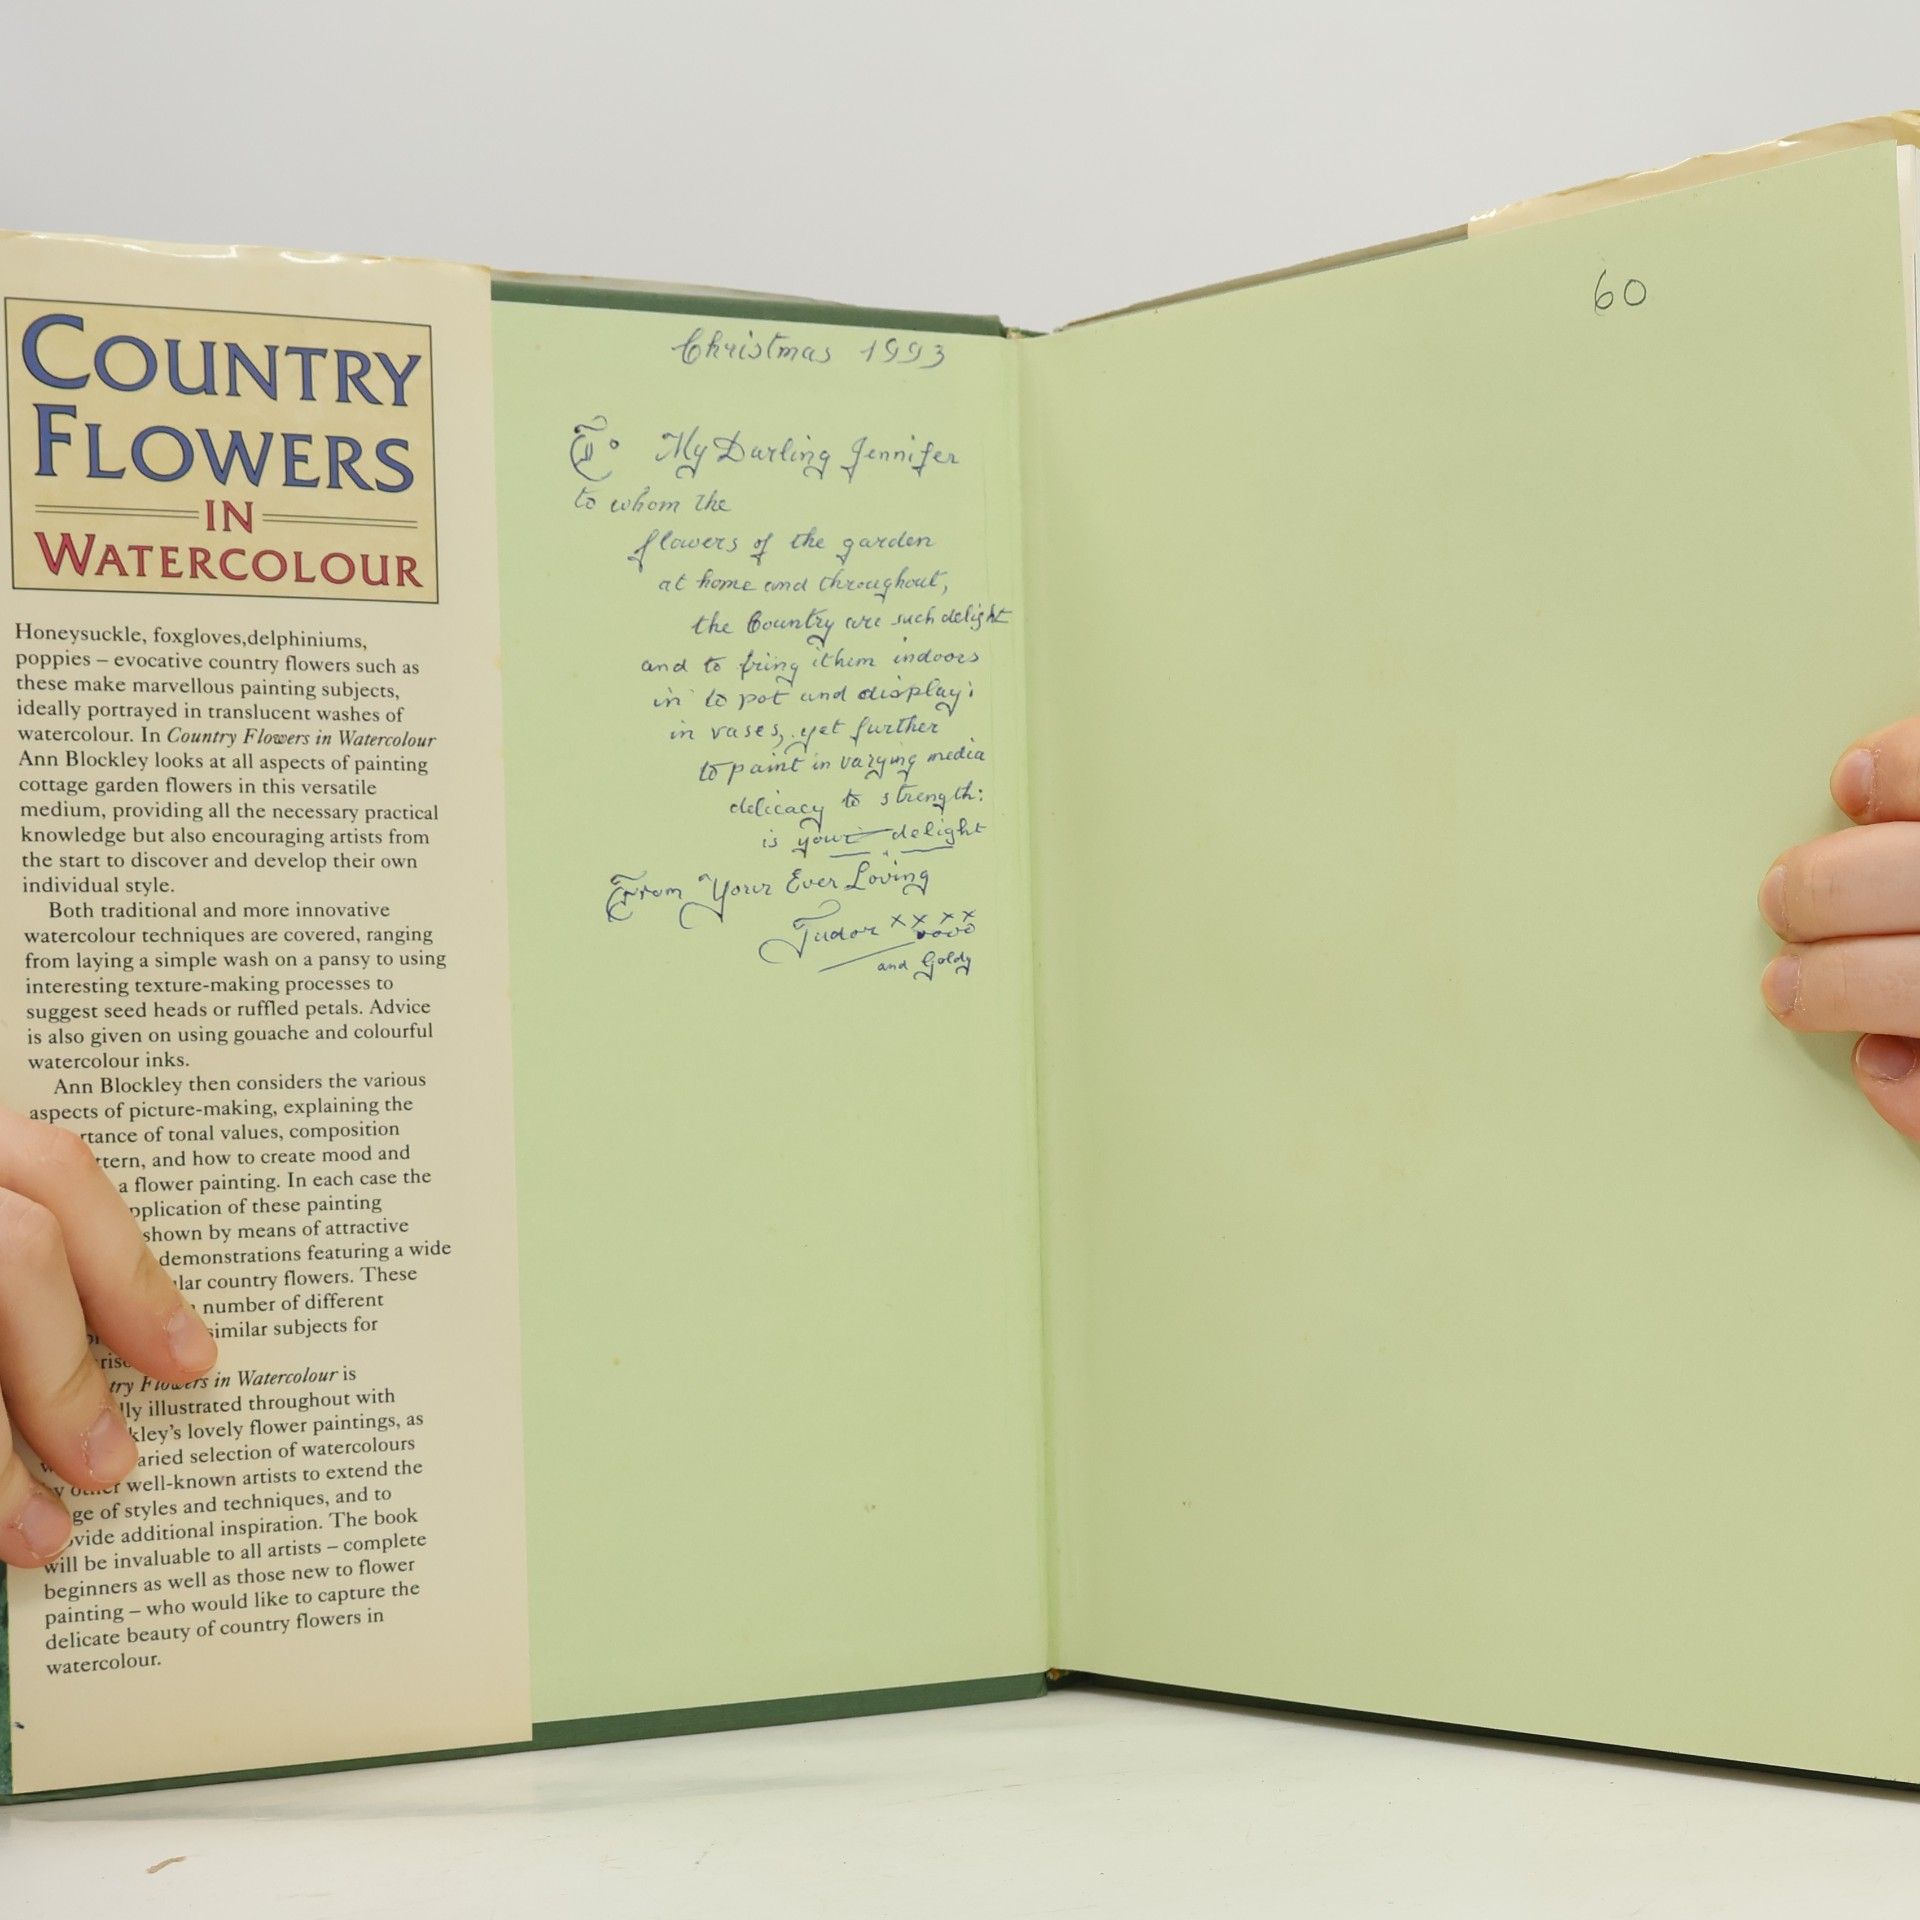 COUNTRY
FLOWERS
IN
WATERCOLOUR
Honeysuckle, foxgloves,delphiniums,
poppies – evocative country flowers such as
these make marvellous painting subjects,
ideally portrayed in translucent washes of
watercolour. In Country Flowers in Watercolour
Ann Blockley looks at all aspects of painting
cottage garden flowers in this versatile
medium, providing all the necessary practical
knowledge but also encouraging artists from
the start to discover and develop their own
individual style.
Both traditional and more innovative
watercolour techniques are covered, ranging
from laying a simple wash on a pansy to using
interesting texture-making processes to
suggest seed heads or ruffled petals. Advice
is also given on using gouache and colourful
watercolour inks.
Ann Blockley then considers the various
aspects of picture-making, explaining the
rtance of tonal values, composition
ttern, and how to create mood and
a flower painting. In each case the
pplication of these painting
shown by means of attractive
demonstrations featuring a wide
ular country flowers. These
number of different
similar subjects for
try Flowers in Watercolour is
lly illustrated throughout with
kley's lovely flower paintings, as
aried selection of watercolours
by other well-known artists to extend the
ge of styles and techniques, and to
ovide additional inspiration. The book
will be invaluable to all artists – complete
beginners as well as those new to flower
painting – who would like to capture the
delicate beauty of country flowers in
watercolour.
Christmas 1993
To My Darling Jennifer
to whom the
flowers of the garden
at home and throughout,
the Country are such delight
and to bring them indoors
in to pot and display:
in vases, yet further
to paint in varying media
delicacy to strength:
is your delight
From Your Ever Loving
Tudor xxxx
and Goldy
60